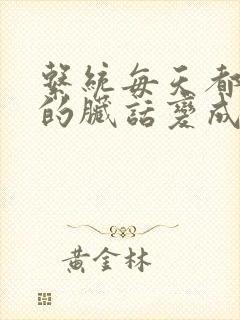 繫統每天都
的臟話變成
黃金林